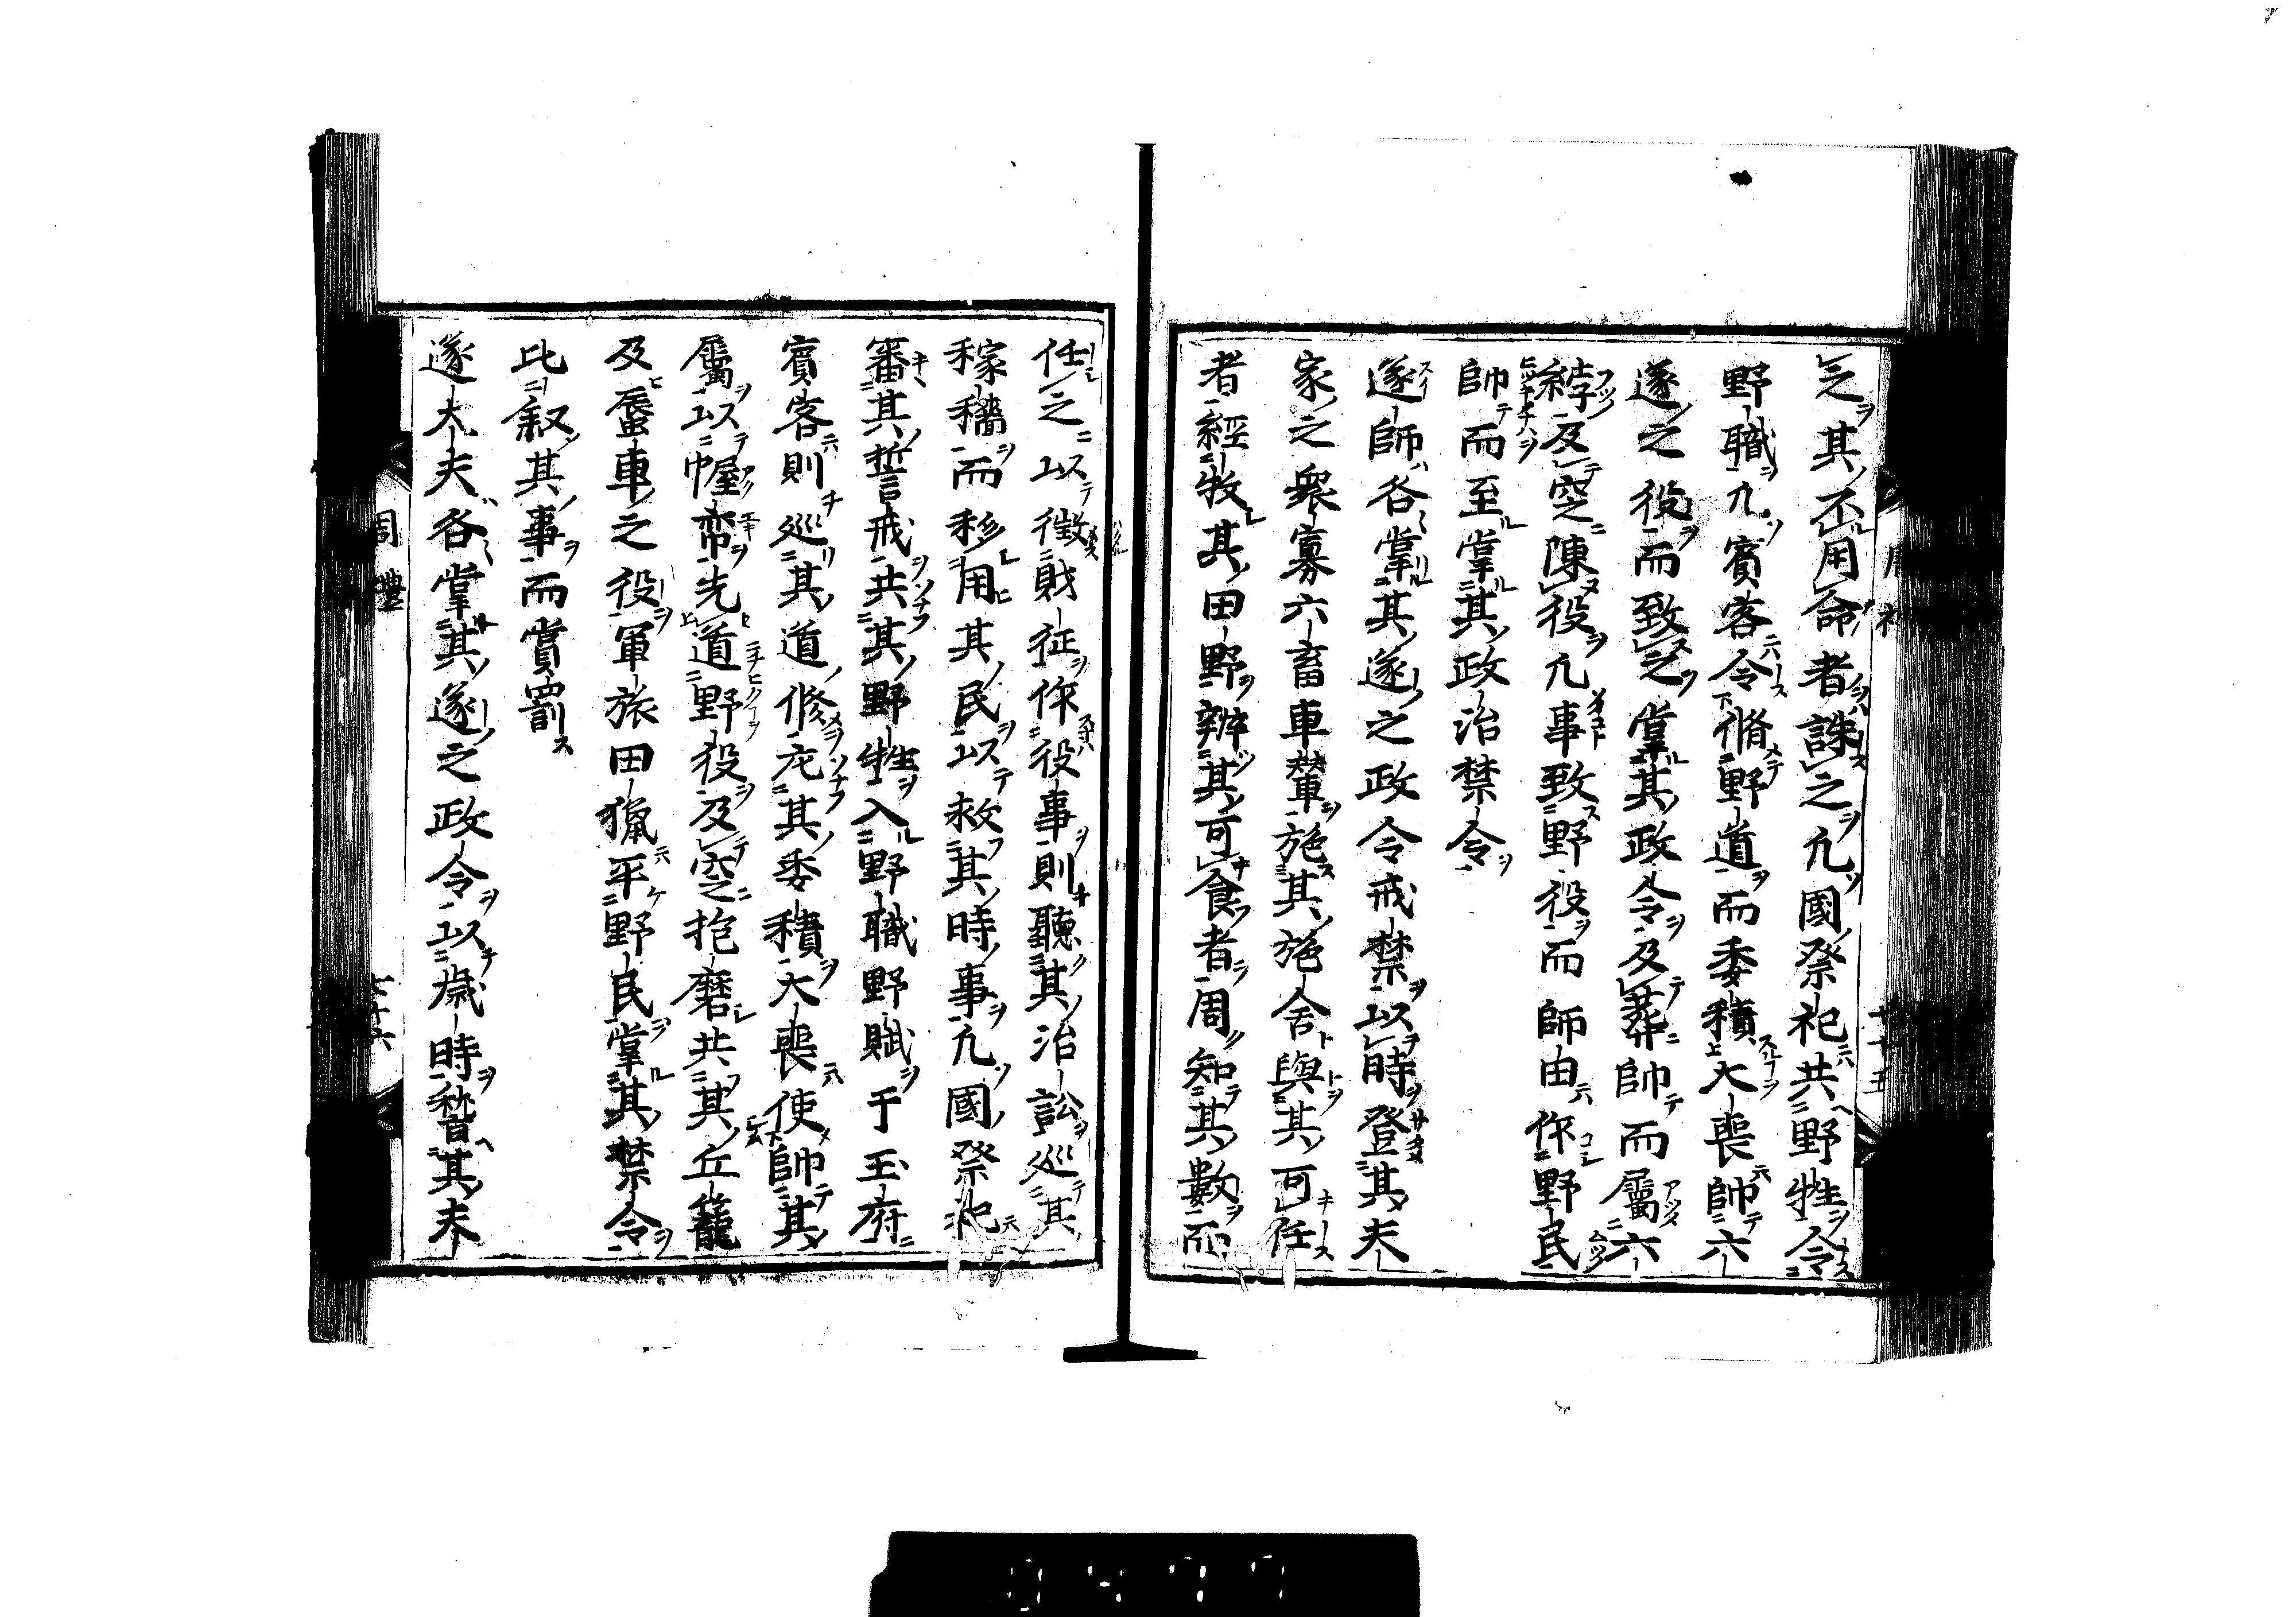 之其不用命者誅之凡國祭祀共野牲令
野職凡賓客令脩野道而委積大喪帥六
遂之役而致之掌其政令及葬帥而屬六
綍及窆陳役凡事致野役而師田作野民
帥而至掌其政治禁令
遂師各掌其遂之政令戒禁以時登其夫
家之衆寡六畜車輦施其施舍與其可任
者經牧其田野辨其可食者周知其數而
任之以徵財征作役事則聽其治訟巡其
稼穡而移用其民以救其時事凡國祭祀
審其誓戒共其野牲入野職野賦于玉府
賓客則巡其道修庀其委積大喪使帥其
屬以幄帟先道野役及窆抱磨共其丘籠
及蜃車之役軍旅田獵平野民掌其禁令
比叙其事而賞罰
遂大夫各掌其遂之政令以歲時稽其夫
周禮